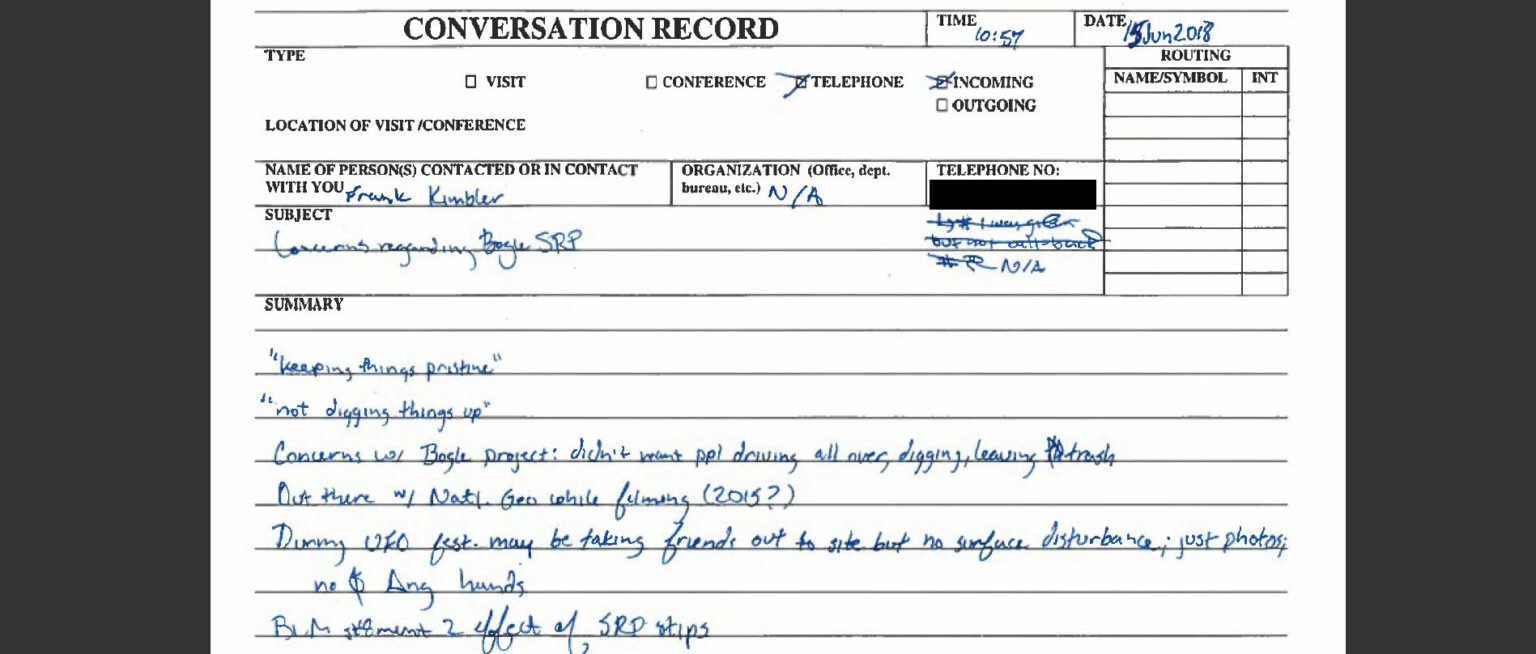 CONVERSATION RECORD
TIME
10:57
DATE
15Jun2018
TYPE
VISIT
CONFERENCE
TELEPHONE
INCOMING
OUTGOING
ROUTING
NAME/SYMBOL
INT
LOCATION OF VISIT /CONFERENCE
NAME OF PERSON(S) CONTACTED OR IN CONTACT
WITH YOU Frank Kimbler
ORGANIZATION (Office, dept.
bureau, etc.) N/A
TELEPHONE NO:
SUBJECT
Concerns regarding Bogle SRP
but not call-back
# N/A
SUMMARY
"keeping things pristine"
"not digging things up"
Concerns w/ Bogle project: didn't want ppl driving all over, digging, leaving trash
Out there w/ Natl. Geo while filming (2015?)
During UFO fest. may be taking friends out to site but no surface disturbance; just photos;
no $ hands
BLM 2 effect of SRP stips